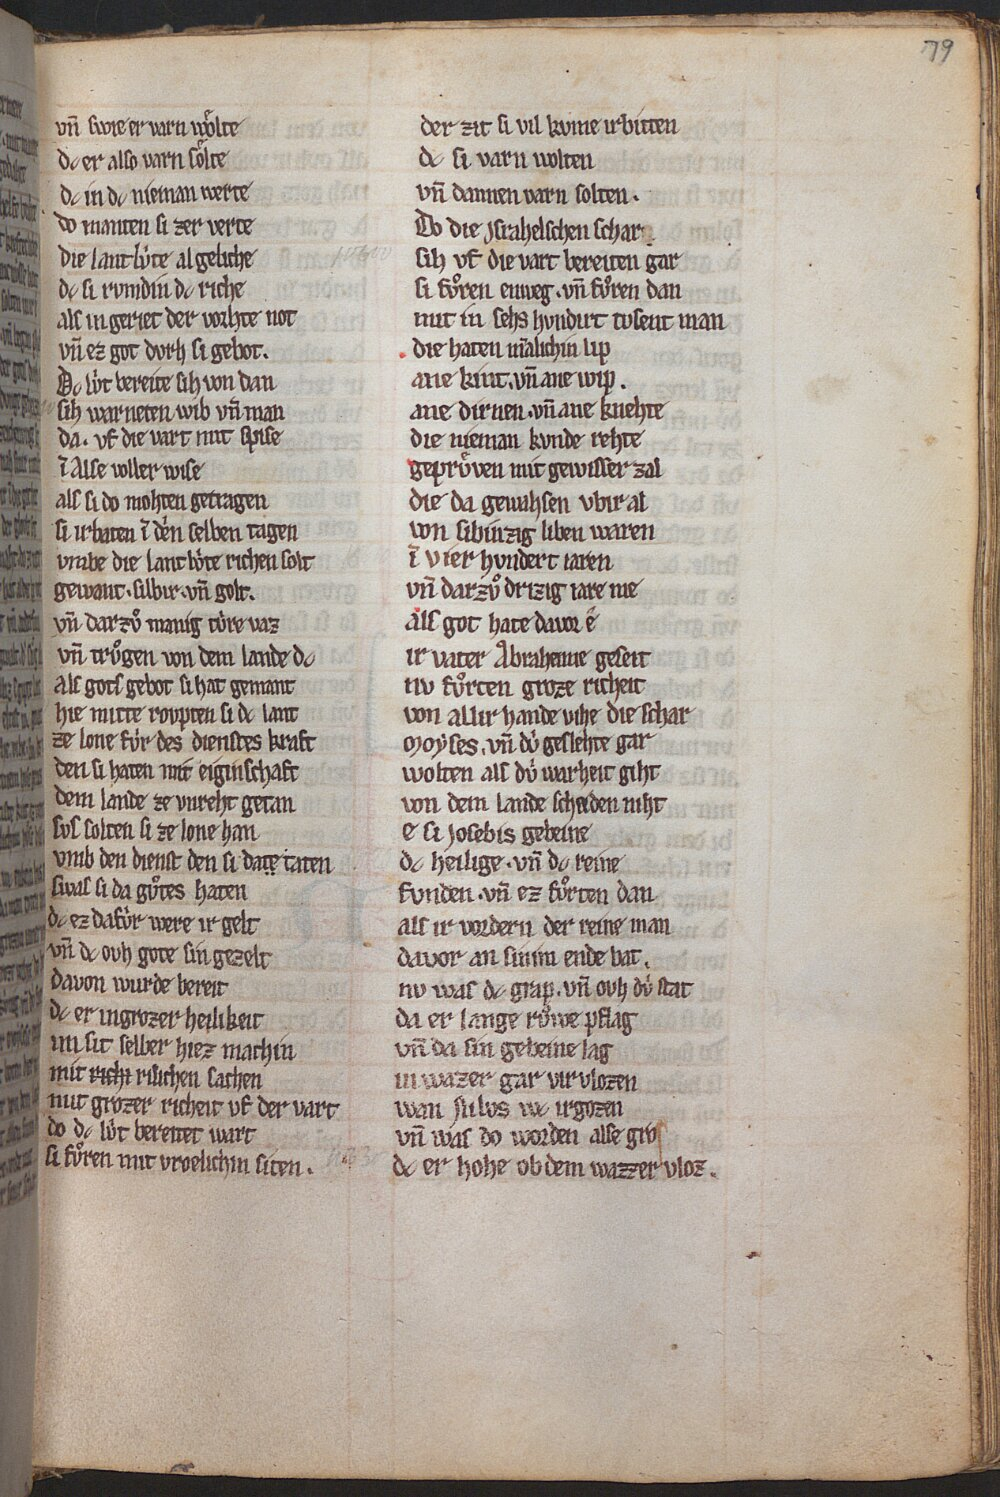 79
vñ swie er varn wͤolte
dc er also varn sͤolte
dc in dc nieman werte
do manten si zer verte
die lantlv̍te algeliche
dc si rvmdin dc riche
als in geriet der vorhte not
vñ ez got dvrh si gebot.
Dc lv̍t bereite sih von dan
sih warneten wib vñ man
da. vf die vart mit spise
ī Alse voller wise
als si do mohten getragen
si irbaten ī den selben tagen
vmbe die lantlv̍te richen solt
gewant. silbir. vñ golt.
vñ darzvͦ manig tv̍re vaz
vñ trvͦgen von dem lande dc
Als gots gebot si hat gemant
hie mitte rovpten si dc lant
ze lone fv̍r des dienstes kraft
den si haten mit eiginschaft
dem lande ze vnreht getan
svs solten si ze lone han
vmb den dienst den si date taten
swas si da gvͦtes haten
dc ez dafv̍r were ir gelt
vñ dc ovh gote sin gezelt
davon wurde bereit
dc er in grozer heilikeit
im sit selber hiez machin
mit richt rilichen sachen
mit grozer richeit vf der vart
do dc lv̍t bereitet wart
si fvͦren mit vroelichin siten.
der zit si vil kvme irbitten
dc si varn wolten
vñ dannen varn solten.
Do die Jsrahelschen schar
sih vf die vart bereiten gar
si fvͦren enweg. vñ fvͦren dan
mit in sehs hvndirt tvsent man
die haten mālichin lip
ane kint. vñ ane wip.
ane dirnen. vñ ane knehte
die nieman kvnde rehte
geprv̍ven mit gewisser zal
die da gewahsen vbir al
von sibinzig liben waren
ī vier hvndert iaren
vñ darzvͦ drizig iare me
als got hate davor e
ir vater Abrahame geseit
nv fvͦrten groze richeit
von allir hande vihe die schar
Moyses. vñ dv̍ geslehte gar
wolten als dv̍ warheit giht
von dem lande scheiden niht
e si Josebis gebeine
dc heilige. vñ dc reine
fvnden. vñ ez fvͦrten dan
als ir vordern der reine man
davor an sinim ende bat.
nv was dc grap. vñ ovh dv̍ stat
da er lange rv̍we pflag
vñ da sin gebeine lag
in wazer gar vir vlozen
wan Nilvs wc irgozen
vñ was do worden alse groz
dc er hohe ob dem wazzer vloz.